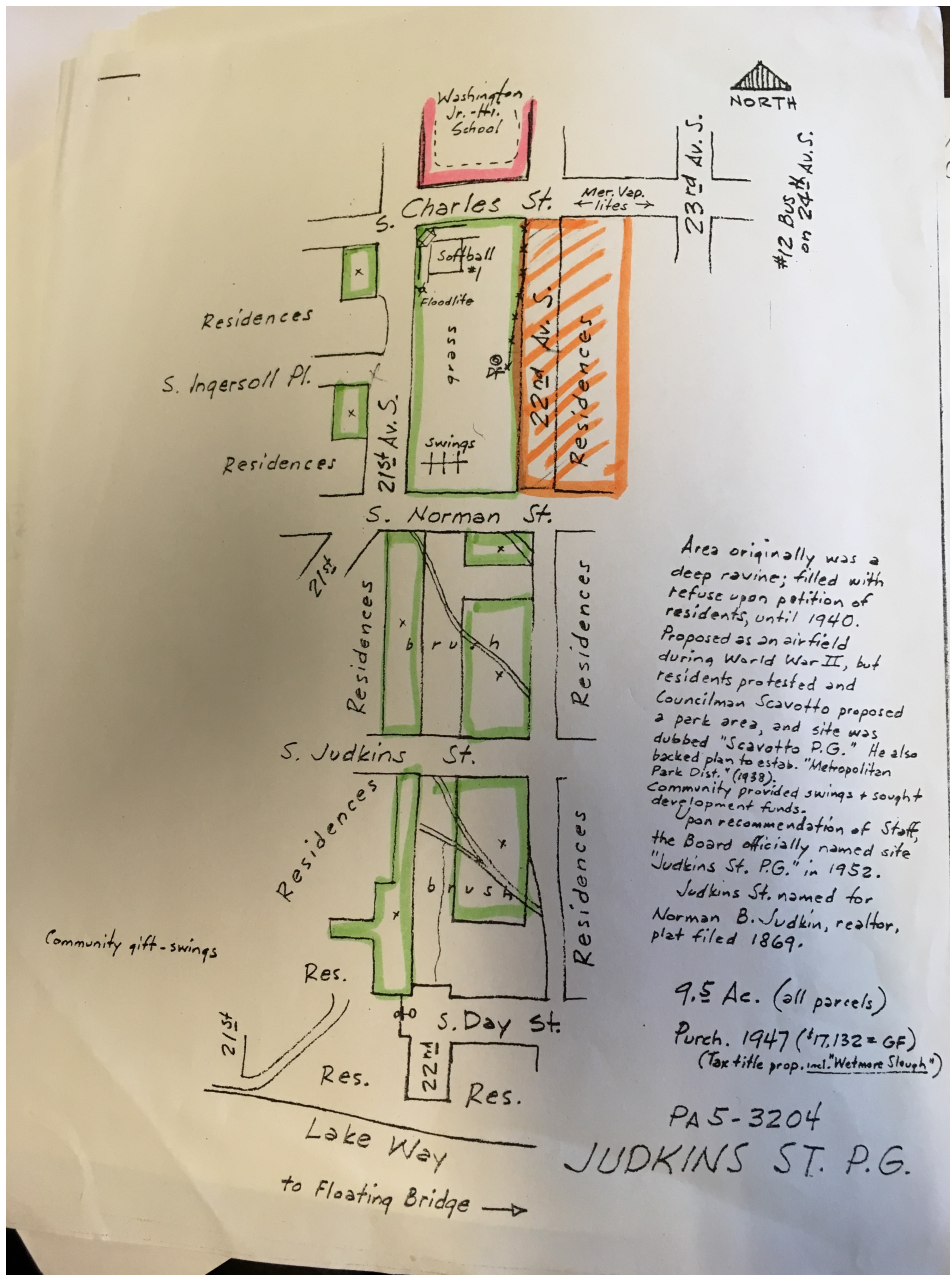 Washington
Jr.-Hi.
School
NORTH
S. Charles St.
Mer. Vap.
← lites →
23rd Av. S.
#12 Bus
on 24th Av. S.
Softball
#1
Floodlite
grass
Swings
22nd Av. S.
Residences
Residences
S. Ingersoll Pl.
Residences
21st Av. S.
S. Norman St.
21st
Residences
brush
Residences
S. Judkins St.
Residences
brush
Residences
Community gift-swings
Res.
S. Day St.
21st
22nd
Res.
Res.
Lake Way
to Floating Bridge →
Area originally was a
deep ravine; filled with
refuse upon petition of
residents, until 1940.
Proposed as an airfield
during World War II, but
residents protested and
Councilman Scavotto proposed
a park area, and site was
dubbed "Scavotto P.G." He also
backed plan to estab. "Metropolitan
Park Dist." (1938).
Community provided swings + sought
development funds.
Upon recommendation of Staff,
the Board officially named site
"Judkins St. P.G." in 1952.
Judkins St. named for
Norman B. Judkin, realtor,
plat filed 1869.
9.5 Ac. (all parcels)
Purch. 1947 ($17,132 = GF)
(Tax title prop. incl. "Wetmore Slough")
PA 5-3204
JUDKINS ST. P.G.